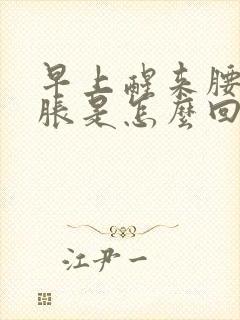 早上醒来腰
脹是怎麼回
江尹一